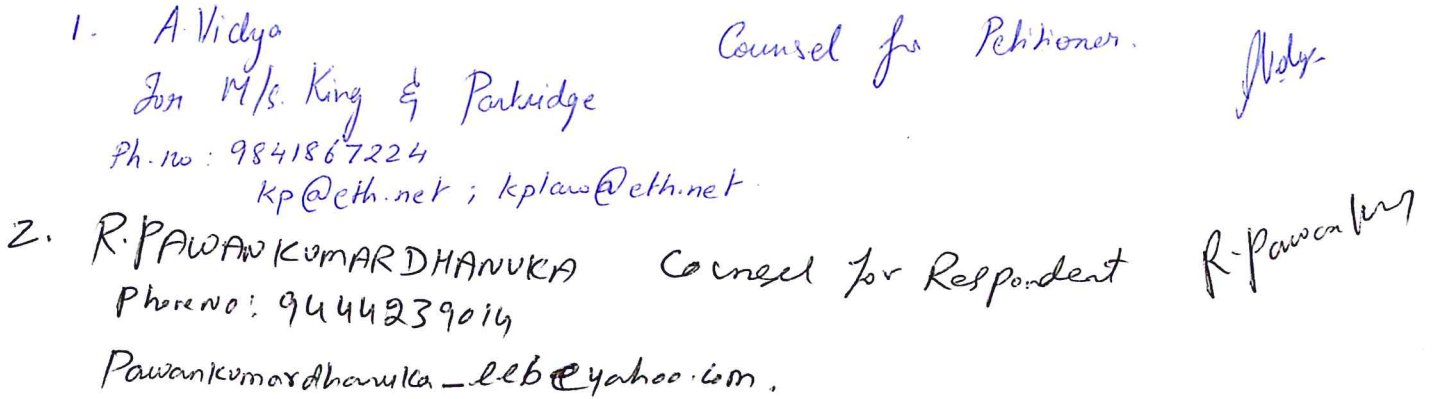 1. A. Vidya Counsel for Petitioner. Vidya
For M/s. King & Partridge
Ph. no : 9841867224
kp@eth.net ; kplaw@eth.net.
2. R. PAWAN KUMAR DHANUKA Counsel for Respondent R. Pawan Kumar
Phone No: 9444239014
Pawankumardhanuka_llb@yahoo.com.